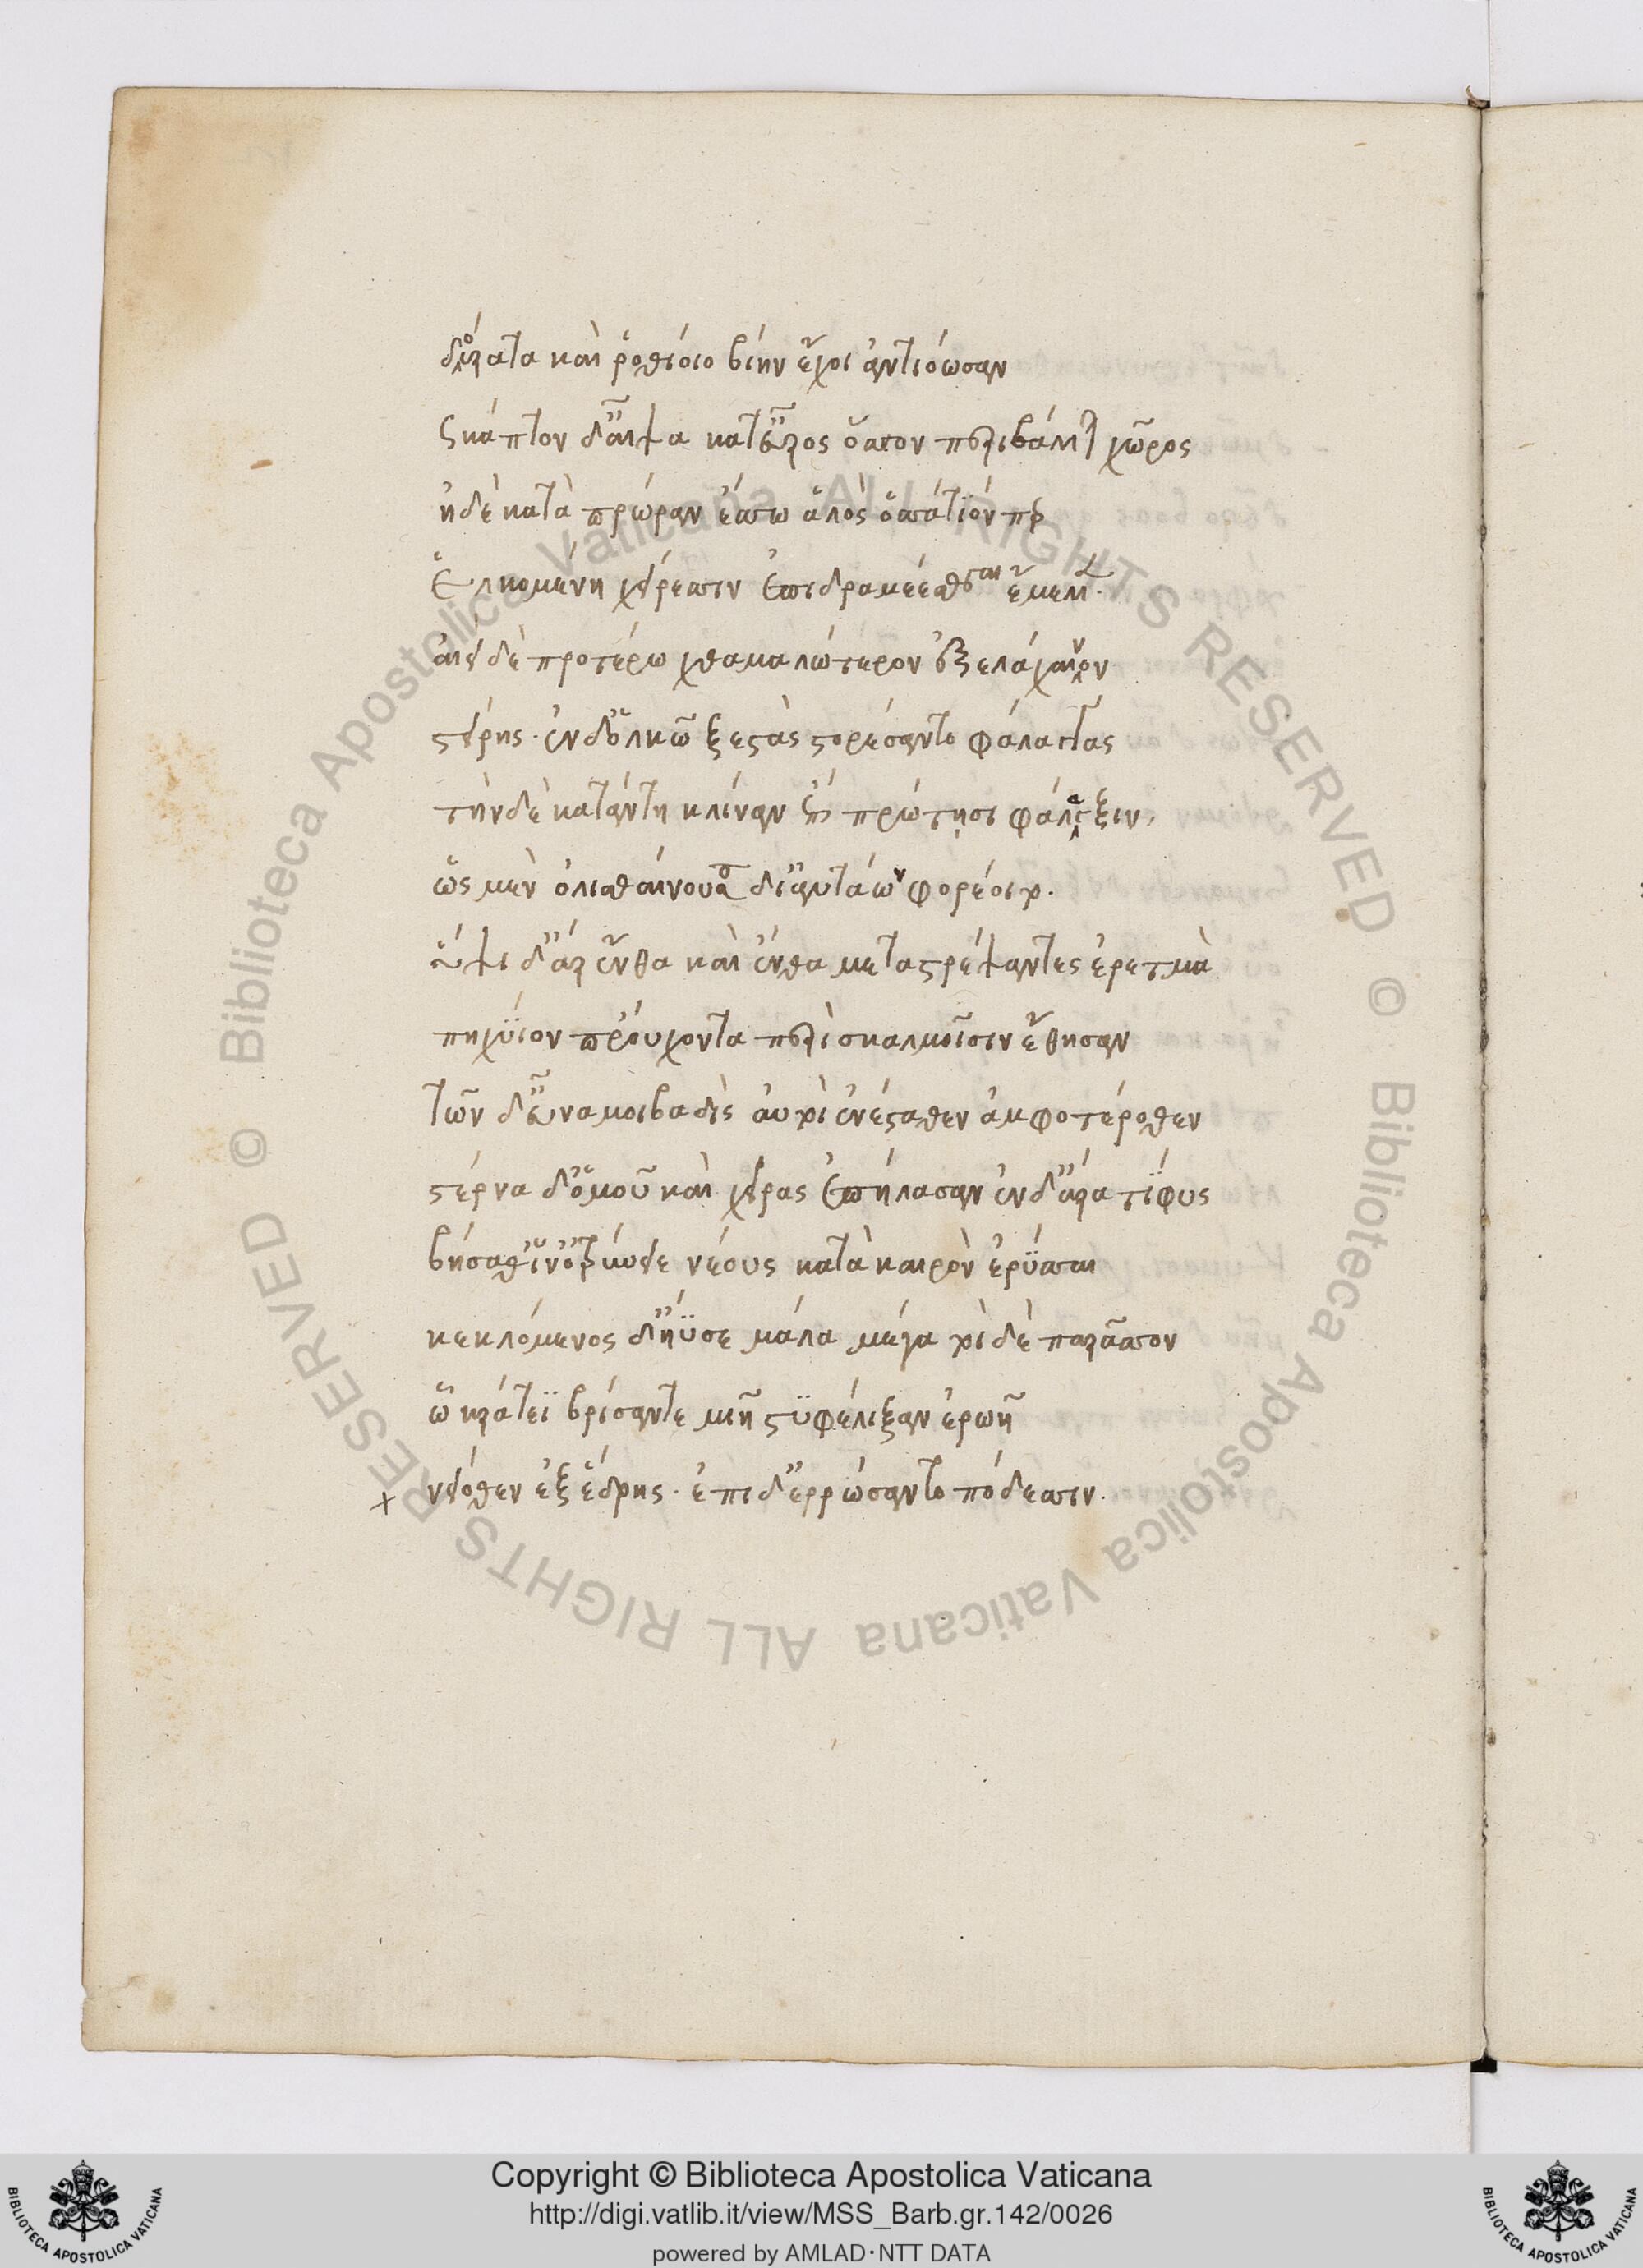 δούρατα καὶ ῥοθίοιο βίην ἔχοι ἀντιόωσαν
σκάπτον δ' αἶψα κατ' εὖρος ὅσσον περιβάλλετο χῶρος
ἠδὲ κατὰ πρώραν ἔσσω ἁλὸς ὁσσάτϊόν περ
ἑλκομένη χείρεσσιν ἐπιδραμέεσθαι ἔμελλεν.
αἰεὶ δὲ προτέρω χθαμαλώτερον ἐξελάχαινον
στείρης· ἐν δ' ὁλκῶ ξεστὰς στορέσαντο φάλαγγας
τὴν δὲ κατάντη κλίναν ἐπὶ πρώτησι φάλαγξιν,
ὥς μὲν ὀλισθαίνουσα δι' αὐτάων φορέοιτο.
ὕψι δ' ἄρ ἔνθα καὶ ἔνθα μεταστρέψαντες ἐρετμὰ
πηχύϊον προύχοντα περὶ σκαλμοῖσιν ἔθησαν
τῶν δ' ἐναμοιβαδὶς αὐτοὶ ἐνέσταθεν ἀμφοτέρωθεν
στέρνα δ' ὁμοῦ καὶ χεῖρας ἐπήλασαν ἐν δ' ἄρα τῖφυς
βήσαθ' ἵν' ὀτρύνειε νέους κατὰ καιρὸν ἐρύσσαι
κεκλόμενος δ' ἤϋσε μάλα μέγα τοὶ δὲ παρᾶσσον
ᾧ κράτεϊ βρίσαντε μιῆ στυφέλιξαν ἐρωῆ
νειόθεν ἐξ ἕδρης· ἐπι δ' ἐρρώσαντο πόδεσσιν.
Copyright © Biblioteca Apostolica Vaticana
http://digi.vatlib.it/view/MSS_Barb.gr.142/0026
powered by AMLAD·NTT DATA
BIBLIOTECA APOSTOLICA VATICANA
BIBLIOTECA APOSTOLICA VATICANA
© Biblioteca Apostolica Vaticana ALL RIGHTS RESERVED
© Biblioteca Apostolica Vaticana ALL RIGHTS RESERVED